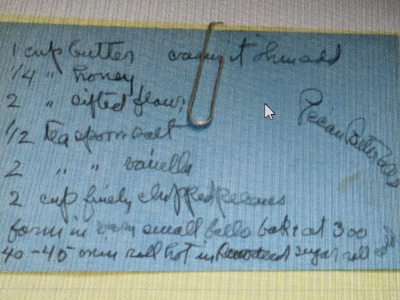 1 cup butter cream it then add
1/4 " honey
2 " sifted flour
1/2 teaspoon salt
2 " " vanilla
2 cup finely chopped pecans
form in very small balls bake at 300
40-45 min roll hot in Powdered sugar roll
Pecan